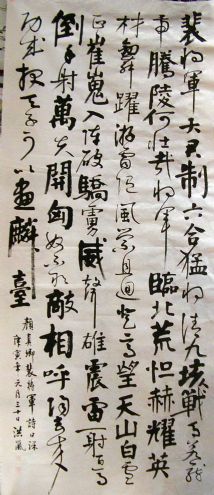 裴将軍大君制六合猛将清九垓戰马若龍
虎騰陵何壯哉将軍臨北荒恒赫耀英
材劍舞躍游電随風萦且迴登高望天山白雲
正崔嵬入陣破驕虜威聲雄震雷一射百馬
倒再射萬夫開匈奴不敢敵相呼歸去来
功成报天子可以畫麟臺
顏真卿裴將軍詩
庚寅年元月三十日洪風